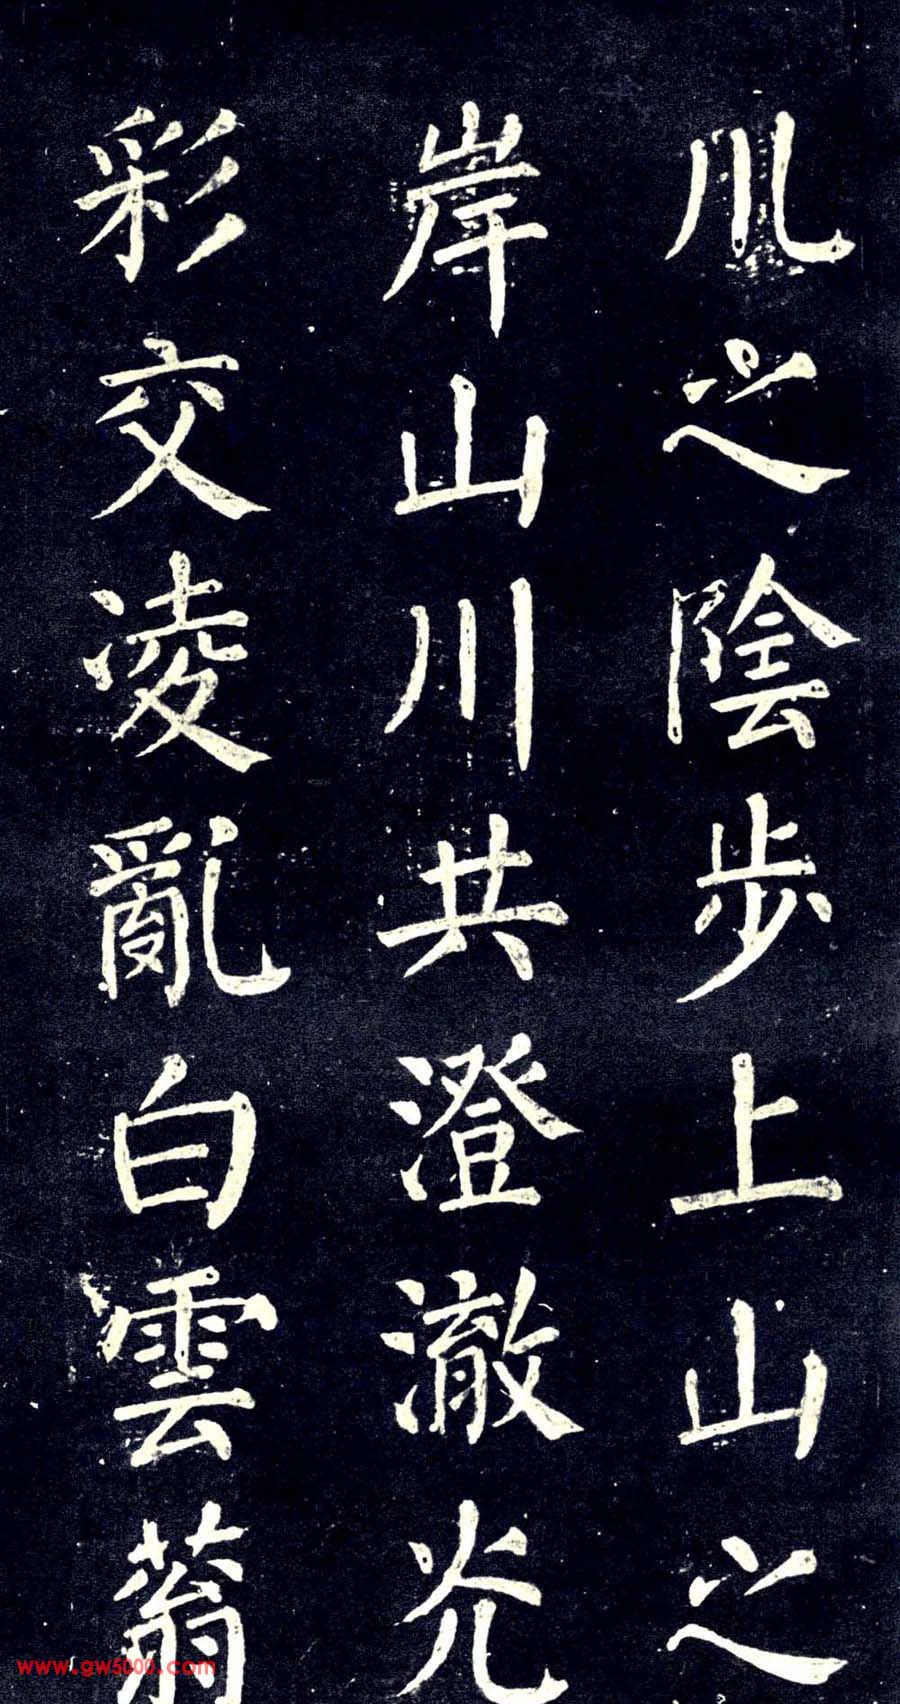 川之陰步上山之
岸山川共澄澈光
彩交凌亂白雲蓊
www.gw5000.com